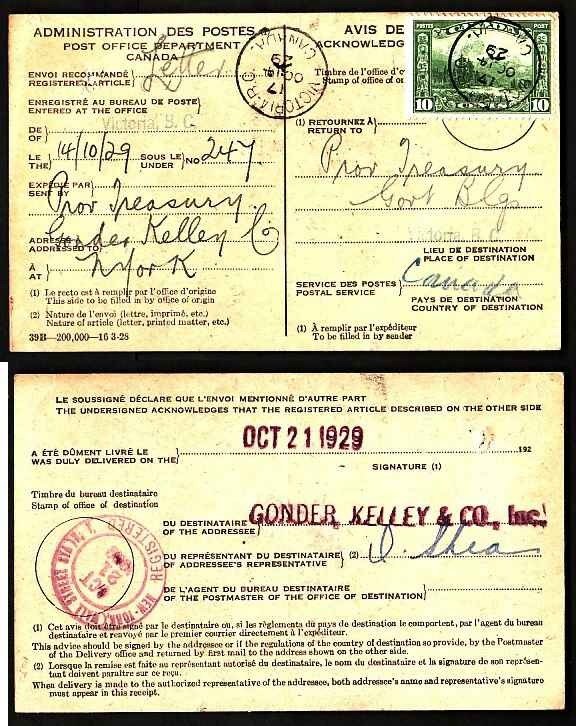 ADMINISTRATION DES POSTES
POST OFFICE DEPARTMENT
CANADA
ENVOI RECOMMANDÉ
REGISTERED ARTICLE
Letter
ENREGISTRÉ AU BUREAU DE POSTE
ENTERED AT THE OFFICE
Victoria, B. C.
DE
OF
LE
THE
14/10/29
SOUS LE
UNDER
No 247.
EXPÉDIÉ PAR
SENT BY
Prov Treasury
ADRESSÉ
ADDRESSED TO
Gonder Kelley Co
À
AT
N York
(1) Le recto est à remplir par l'office d'origine
This side to be filled in by office of origin
(2) Nature de l'envoi (lettre, imprimé, etc.)
Nature of article (letter, printed matter, etc.)
39B—200,000—16 3-28
VICTORIA B.C.
CANADA
17
OC 14
29
AVIS DE
ACKNOWLEDG
Timbre de l'office d'o
Stamp of office of
POSTES POSTAGE
10 CENTS 10
OC 14
29
(1) RETOURNEZ À
RETURN TO
Prov Treasury
Govt Blgs
Victoria, B. C.
LIEU DE DESTINATION
PLACE OF DESTINATION
SERVICE DES POSTES
POSTAL SERVICE
Canada
PAYS DE DESTINATION
COUNTRY OF DESTINATION
(1) À remplir par l'expéditeur
To be filled in by sender
LE SOUSSIGNÉ DÉCLARE QUE L'ENVOI MENTIONNÉ D'AUTRE PART
THE UNDERSIGNED ACKNOWLEDGES THAT THE REGISTERED ARTICLE DESCRIBED ON THE OTHER SIDE
OCT 21 1929
A ÉTÉ DÛMENT LIVRÉ LE
WAS DULY DELIVERED ON THE
192
SIGNATURE (1)
Timbre du bureau destinataire
Stamp of office of destination
DU DESTINATAIRE
OF THE ADDRESSEE
GONDER, KELLEY & CO., Inc.
DU REPRÉSENTANT DU DESTINATAIRE
OF ADDRESSEE'S REPRESENTATIVE
(2)
O. Shea
DE L'AGENT DU BUREAU DESTINATAIRE
OF THE POSTMASTER OF THE OFFICE OF DESTINATION
REGISTERED
NEW-YORK, WALL STREET STA. N.Y.
OCT
(1) Cet avis doit être signé par le destinataire ou, si les règlements du pays de destination le comportent, par l'agent du bureau
destinataire et renvoyé par le premier courrier directement à l'expéditeur.
This advice should be signed by the addressee or if the regulations of the country of destination so provide, by the Postmaster
of the Delivery office and returned by first mail to the address shown on the other side.
(2) Lorsque la remise est faite au représentant autorisé du destinataire, le nom du destinataire et la signature de son représen-
tant doivent paraître sur ce reçu.
When delivery is made to the authorized representative of the addressee, both addressee's name and representative's signature
must appear in this receipt.